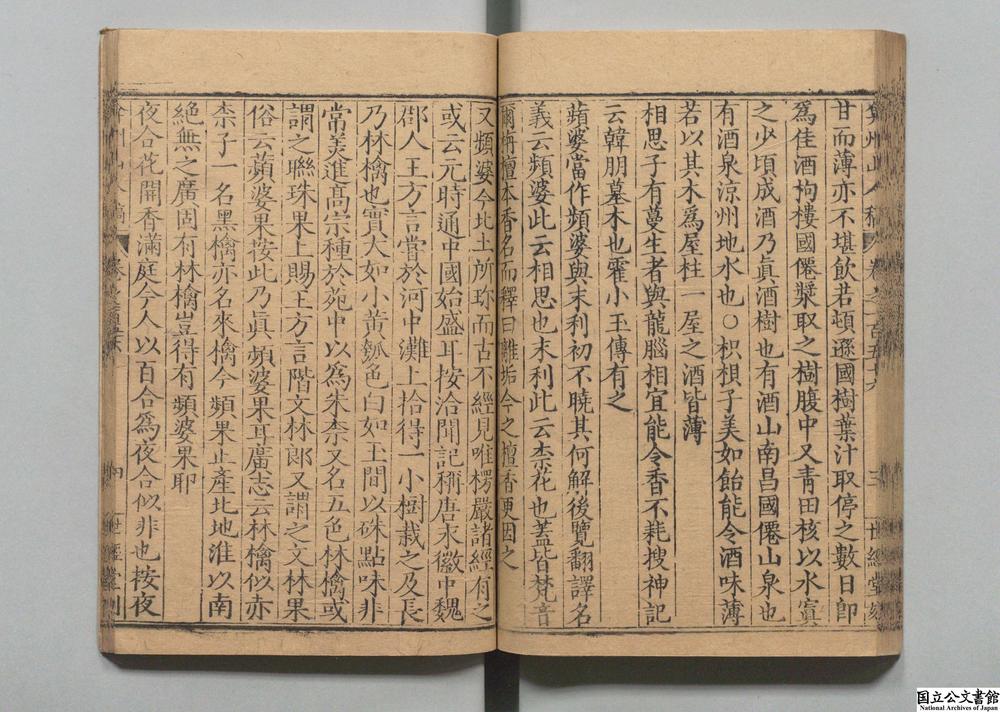 弇州山人稿 卷之一百五十六 三 世經堂刻
甘而薄亦不堪飲若頓遜國樹葉汁取停之數日卽
爲佳酒枸樓國僊漿取之樹腹中又靑田核以水實
之少頃成酒乃眞酒樹也有酒山南昌國僊山泉也
有酒泉涼州地水也○枳椇子美如飴能令酒味薄
若以其木爲屋柱一屋之酒皆薄
相思子有蔓生者與龍腦相宜能令香不耗搜神記
云韓朋墓木也霍小玉傳有之
蘋婆當作頻婆與末利初不曉其何解後覽翻譯名
義云頻婆此云相思也末利此云柰花也蓋皆梵音
爾栴檀本香名而釋曰離垢今之檀香更因之
又頻婆今北土所珍而古不經見唯楞嚴諸經有之
或云元時通中國始盛耳按洽聞記稱唐永徽中魏
郡人王方言嘗於河中灘上拾得一小樹栽之及長
乃林檎也實大如小黃瓠色白如玉間以硃點味非
常美進高宗種於苑中以爲朱柰又名五色林檎或
謂之聯珠果上賜王方言階文林郎又謂之文林果
俗云蘋婆果按此乃眞頻婆果耳廣志云林檎似赤
柰子一名黑檎亦名來檎今頻果止產北地淮以南
絕無之廣固有林檎豈得有頻婆果耶
夜合花開香滿庭今人以百合爲夜合似非也按夜
世經堂刻
国立公文書館
National Archives of Japan